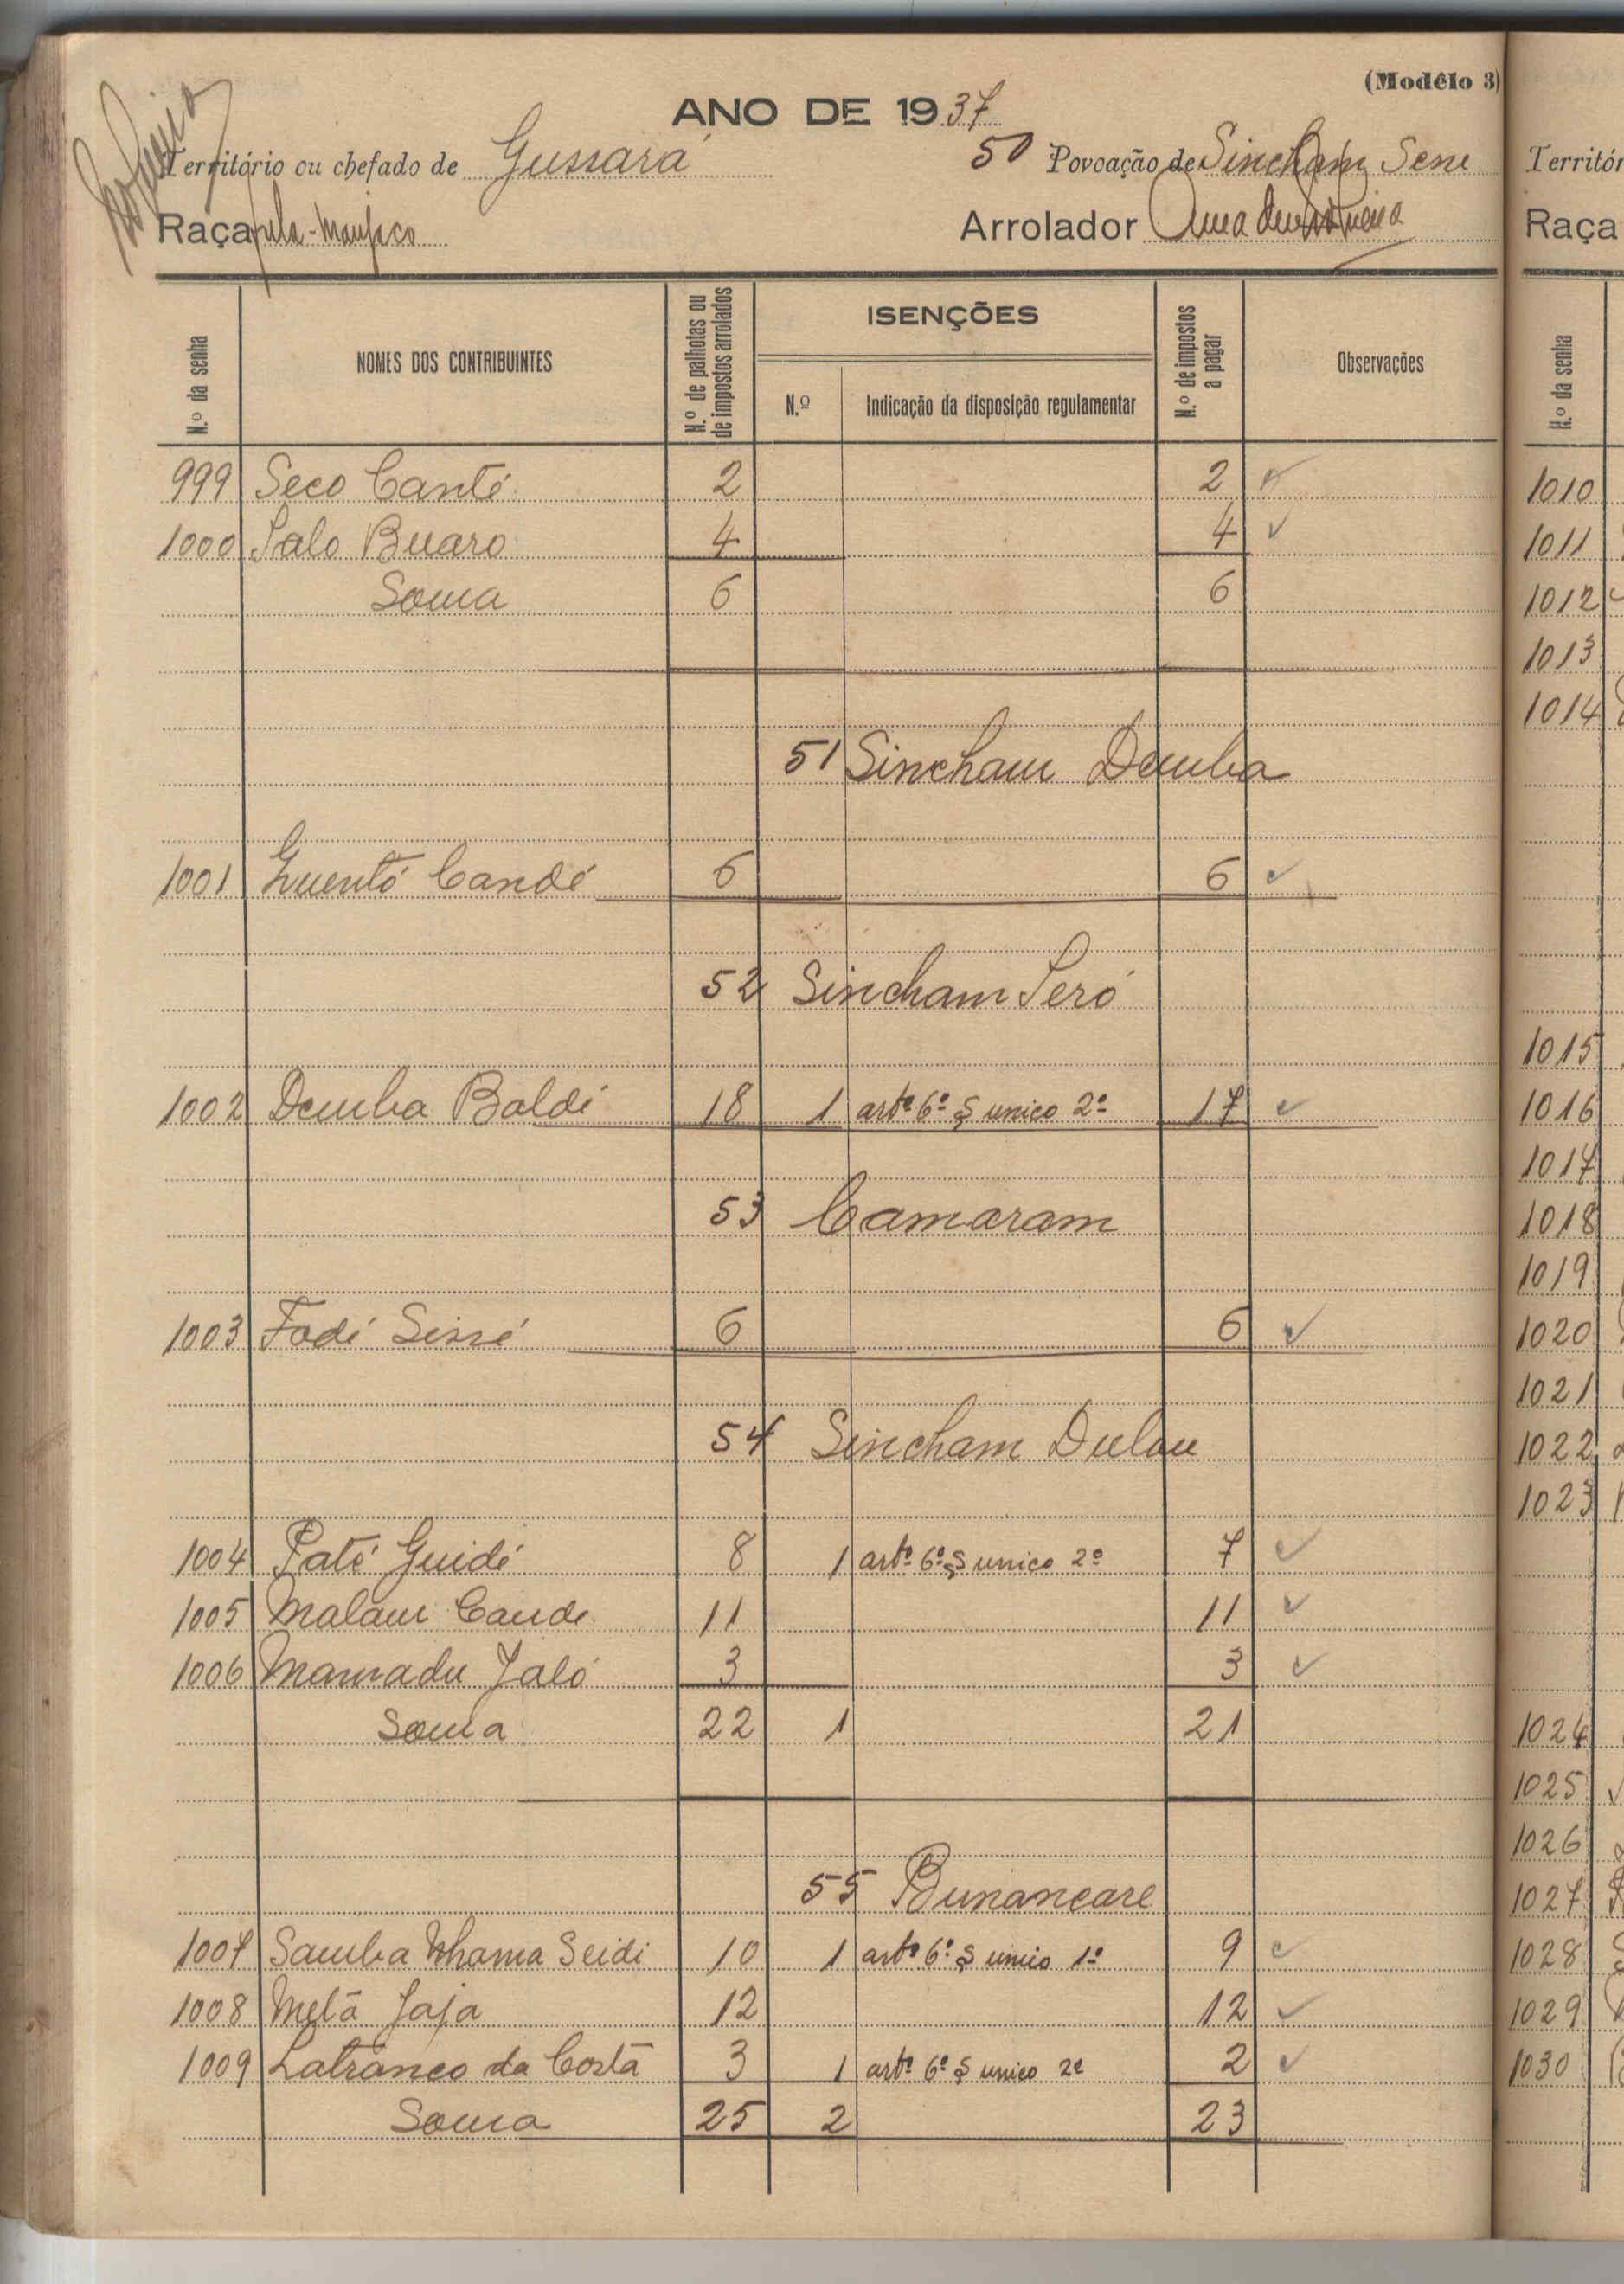 (Modêlo 3)
ANO DE 1937
Território ou chefado de Gussará 50 Povoação de Sincham Sene
Raça Arrolador
N.º da senha NOMES DOS CONTRIBUINTES N.º de palhotas ou de impostos arrolados ISENÇÕES N.º de impostos a pagar Observações
N.º Indicação da disposição regulamentar
999 Seco Canté 2 2 ✓
1000 Salo Buaro 4 4 ✓
Soma 6 6
51 Sincham Demba
1001 Candé 6 6 ✓
52 Sincham Seró
1002 Demba Baldé 18 1 artº 6º § unico 2º 17 ✓
53 Camaram
1003 Fodé Sissé 6 6 ✓
54 Sincham Dulau
1004 Paté Guidé 8 1 artº 6º § unico 2º 7 ✓
1005 Malam Cande 11 11 ✓
1006 Mamadu Jaló 3 3 ✓
Soma 22 1 21
55 Bunancare
1007 Samba Nhama Seidi 10 1 artº 6º § unico 1º 9 ✓
1008 Metá Jaja 12 12 ✓
1009 Latranco da Costa 3 1 artº 6º § unico 2º 2 ✓
Soma 25 2 23
Territór
Raça
N.º da senha
1010
1011
1012
1013
1014
1015
1016
1017
1018
1019
1020
1021
1022
1023
1024
1025
1026
1027
1028
1029
1030